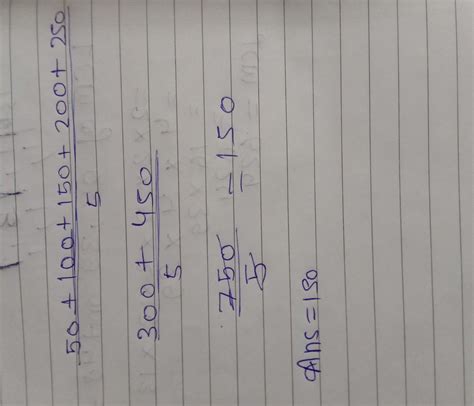 50 + 100 + 150 + 200 + 250
5
300 + 450
5
750 = 150
5
Ans = 150